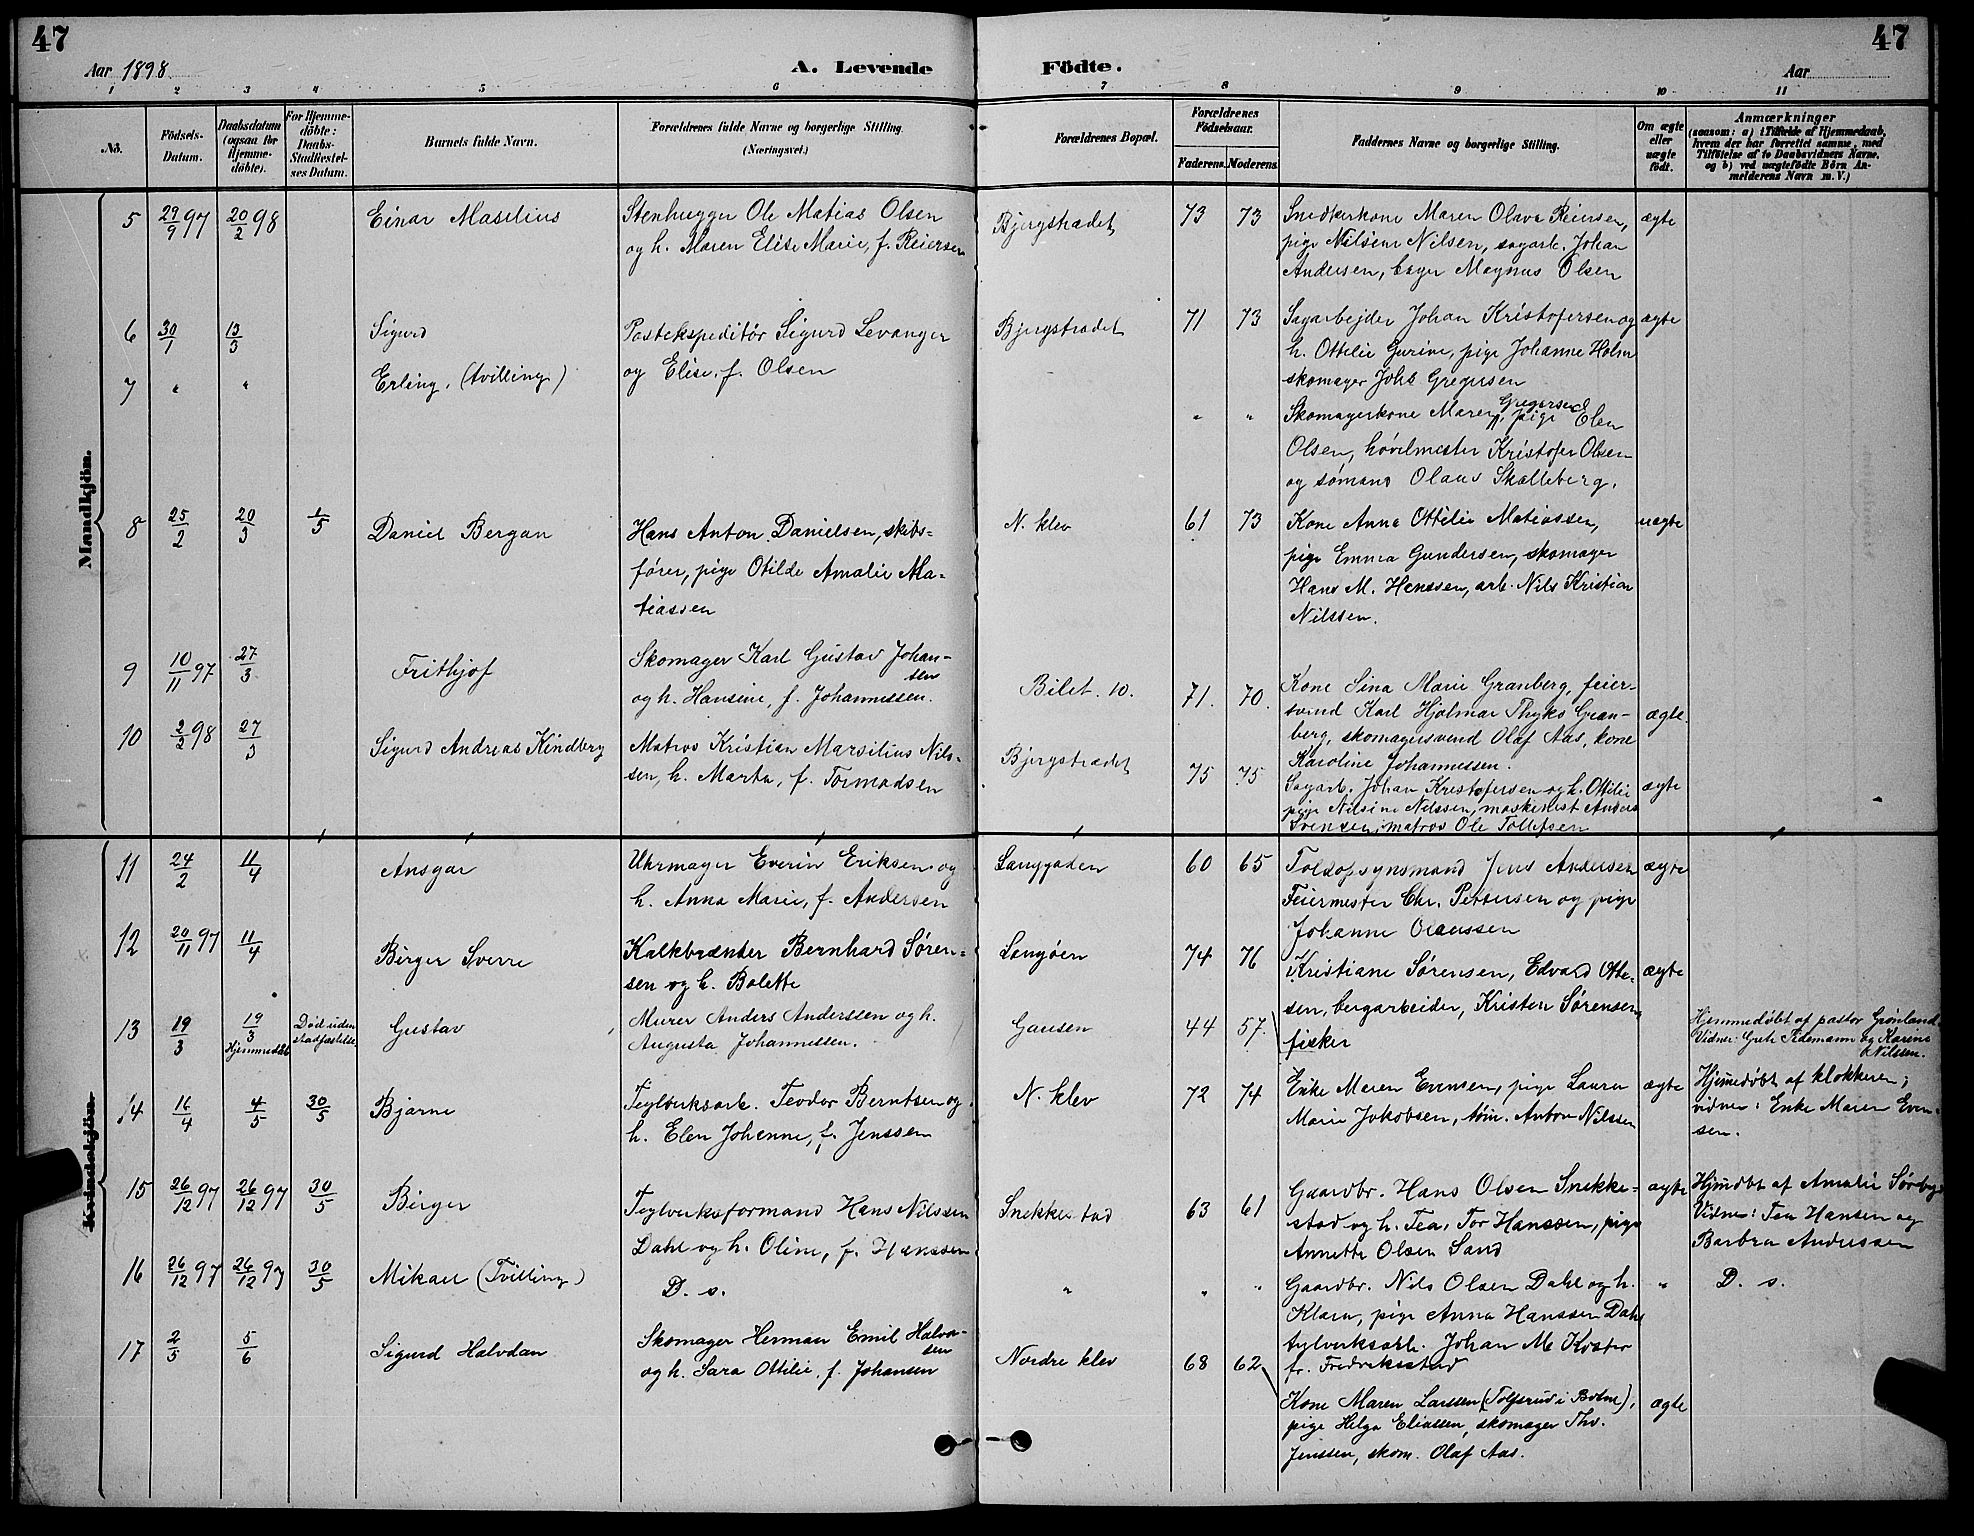 47
47
Aar 1898.
A. Levende
Födte.
Aar
1 2 3 4 5 6 7 8 9 10 11
No.
Födsels-
Datum.
Daabsdatum
(ogsaa for
Hjemme-
döbte).
For Hjemme-
döbte:
Daabs-
Stadfæstel-
ses Datum.
Barnets fulde Navn.
Forældrenes fulde Navne og borgerlige Stilling
(Næringsvei.)
Forældrenes Bopæl.
Forældrenes
Födselsaar.
Faderens. Moderens.
Faddernes Navne og borgerlige Stilling.
Om ægte
eller
uægte
födt.
Anmærkninger
(saasom: a) i Tilfælde af Hjemmedaab,
hvem der har forrettet samme, med
Tilföielse af to Daabsvidners Navne,
og b) ved uægtefödte Börn An-
melderens Navn m. V.)
Mandkjön.
5 29/9 97 20/2 98 Einar Maselius
Stenhugger Ole Matias Olsen
og h. Maren Elise Marie, f. Reiersen
Bjergstrædet 73 73
Snedkerkone Maren Olava Reiersen,
pige Nilsine Nilsen, sagarb. Johan
Andersen, bager Magnus Olsen
ægte
6 30/1 13/3 Sigurd
Postekspeditør Sigurd Levanger
og Elise, f. Olsen
Bjergstrædet 71 73
Sagarbejder Johan Kristofersen og
h. Ottilie Gurine, pige Johanne Holm
skomager Johs Gregersen
ægte
7 " " Erling, (tvilling)
" "
Skomagerkone Maren Gregersen, pige Elen
Olsen, høvelmester Kristofer Olsen
og sømand Olaus Skalleberg.
8 25/2 20/3 1/5 Daniel Bergan
Hans Anton Danielsen, skibs-
fører, pige Otilde Amalie Ma-
tiassen
N. klev 61 73
Kone Anna Ottilie Matiassen,
pige Emma Gundersen, skomager
Hans M. Hanssen, arb. Nils Kristian
Nilssen.
uægte
9 10/11 97 27/3 Frithjof
Skomager Karl Gustav Johan-
sen
og h. Hansine, f. Johannessen.
Bilet. 10. 71. 70.
Kone Sina Marie Granberg, feier-
svend Karl Hjalmar Thyko Gran-
berg, skomagersvend Olaf Aas, kone
Karoline Johannessen.
ægte.
10 2/2 98 27/3 Sigurd Andreas Kindberg
Matros Kristian Marsilius Nils-
sen, h. Marta, f. Tormodsen
Bjergstrædet 75 75
Sagarb. Johan Kristofersen og h. Ottilie
pige Nilsine Nilssen, maskinist Anders
Svensen, matros Ole Tollefsen
ægte
Kvindekjön.
11 24/2 11/4 Ansgar
Uhrmager Everin Eriksen og
h. Anna Marie, f. Andersen
Langgaden 60 65
Toldopsynsmand Jens Andersen
Feiermester Chr. Pettersen og pige
Johanne Olaussen
ægte
12 20/11 97 11/4 Birger Sverre
Kalkbrænder Bernhard Søren-
sen og h. Bolette
Langøen 74 76
Kristiane Sørensen, Edvard Otte-
sen, bergarbeider, Kristen Sørensen,
fisker
ægte
13 19/3 19/3
Hjemmedøbt
Død uden
stadfæstelse
Gustav
Murer Anders Anderssen og h.
Augusta Johannessen.
Gausen 44 57.
Hjemmedøbt af pastor Grønland
Vidner: Grete Tidemann og Karine
Nilssen.
14 16/4 4/5 30/5 Bjarne
Teglverksarb. Teodor Berntsen og
h. Elen Johanne, f. Jenssen
N. klev 72 74
Enke Maren Evensen, pige Laura
Marie Jakobsen, tøm. Anton Nilssen
ægte
Hjemedøbt af klokkeren;
vidner: Enke Maren Even-
sen.
15 26/12 97 26/12 97 30/5 Birger
Teglverksformand Hans Nilssen
Dahl og h. Oline, f. Hanssen
Snekkestad 63 61
Gaardbr. Hans Olsen Snekke-
stad og h. Tea, Tor Hanssen, pige
Annette Olsen Sand
ægte
Hjemdøbt af Amalie Sørby
Vidner: Tea Hansen og
Barbra Anderssen
16 26/12 97 26/12 97 30/5 Mikael (Tvilling)
D. s.
" " "
Gaardbr. Nils Olsen Dahl og h.
Klara, pige Anna Hanssen Dahl
teglverksarb. Johan M. Koster
fr. Fredriksstad
"
D. s.
17 2/5 5/6 Sigurd Halvdan
Skomager Herman Emil Halvor-
sen
og h. Sara Ottilie, f. Johansen
Nordre klev 68 62
Kone Maren Larssen (Tolfsrud i Botne),
pige Helga Eliassen, skomager Thv.
Jenssen, skom. Olaf Aas.
ægte